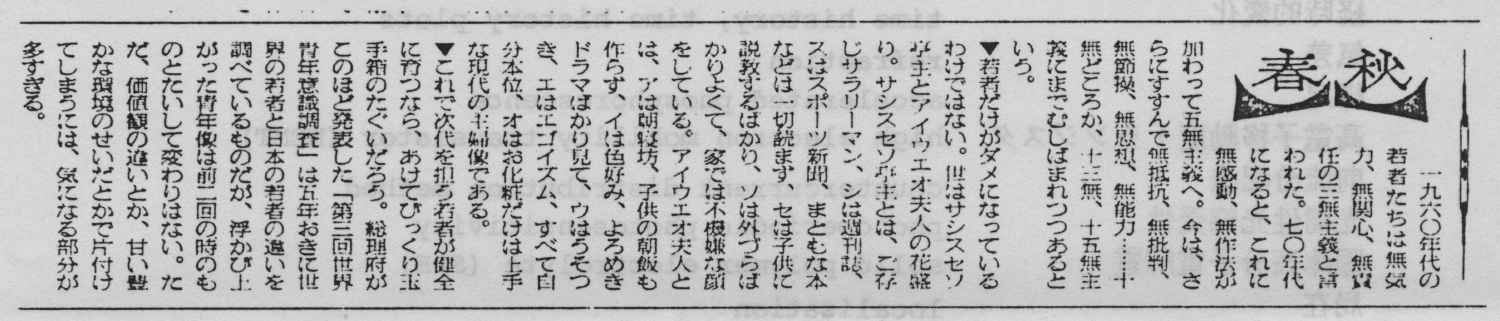 秋春
一九六〇年代の
若者たちは無気
力、無関心、無責
任の三無主義と言
われた。七〇年代
になると、これに
無感動、無作法が
加わって五無主義へ。今は、さ
らにすすんで無抵抗、無批判、
無節操、無思想、無能力……十
無どころか、十三無、十五無主
義にまでむしばまれつつあると
いう。
▼若者だけがダメになっている
わけではない。世はサシスセソ
亭主とアイウエオ夫人の花盛
り。サシスセソ亭主とは、ご存
じサラリーマン、シは週刊誌、
スはスポーツ新聞、まともな本
などは一切読まず、セは子供に
説教するばかり、ソは外づらば
かりよくて、家では不機嫌な顔
をしてる。アイウエオ夫人と
は、アは朝寝坊、子供の朝飯も
作らず、イは色好み、よろめき
ドラマばかり見て、ウはうそつ
き、エはエゴイズム、すべて自
分本位、オはお化粧だけは上手
な現代の主婦像である。
▼これで次代を担う若者が健全
に育つなら、あけてびっくり玉
手箱のたぐいだろう。総理府が
このほど発表した「第三回世界
青年意識調査」は五年おきに世
界の若者と日本の若者の違いを
調べているものだが、浮かび上
がった青年像は前二回の時のも
のとたいして変わりはない。た
だ、価値観の違いとか、甘い豊
かな環境のせいだとかで片付け
てしまうには、気になる部分が
多すぎる。